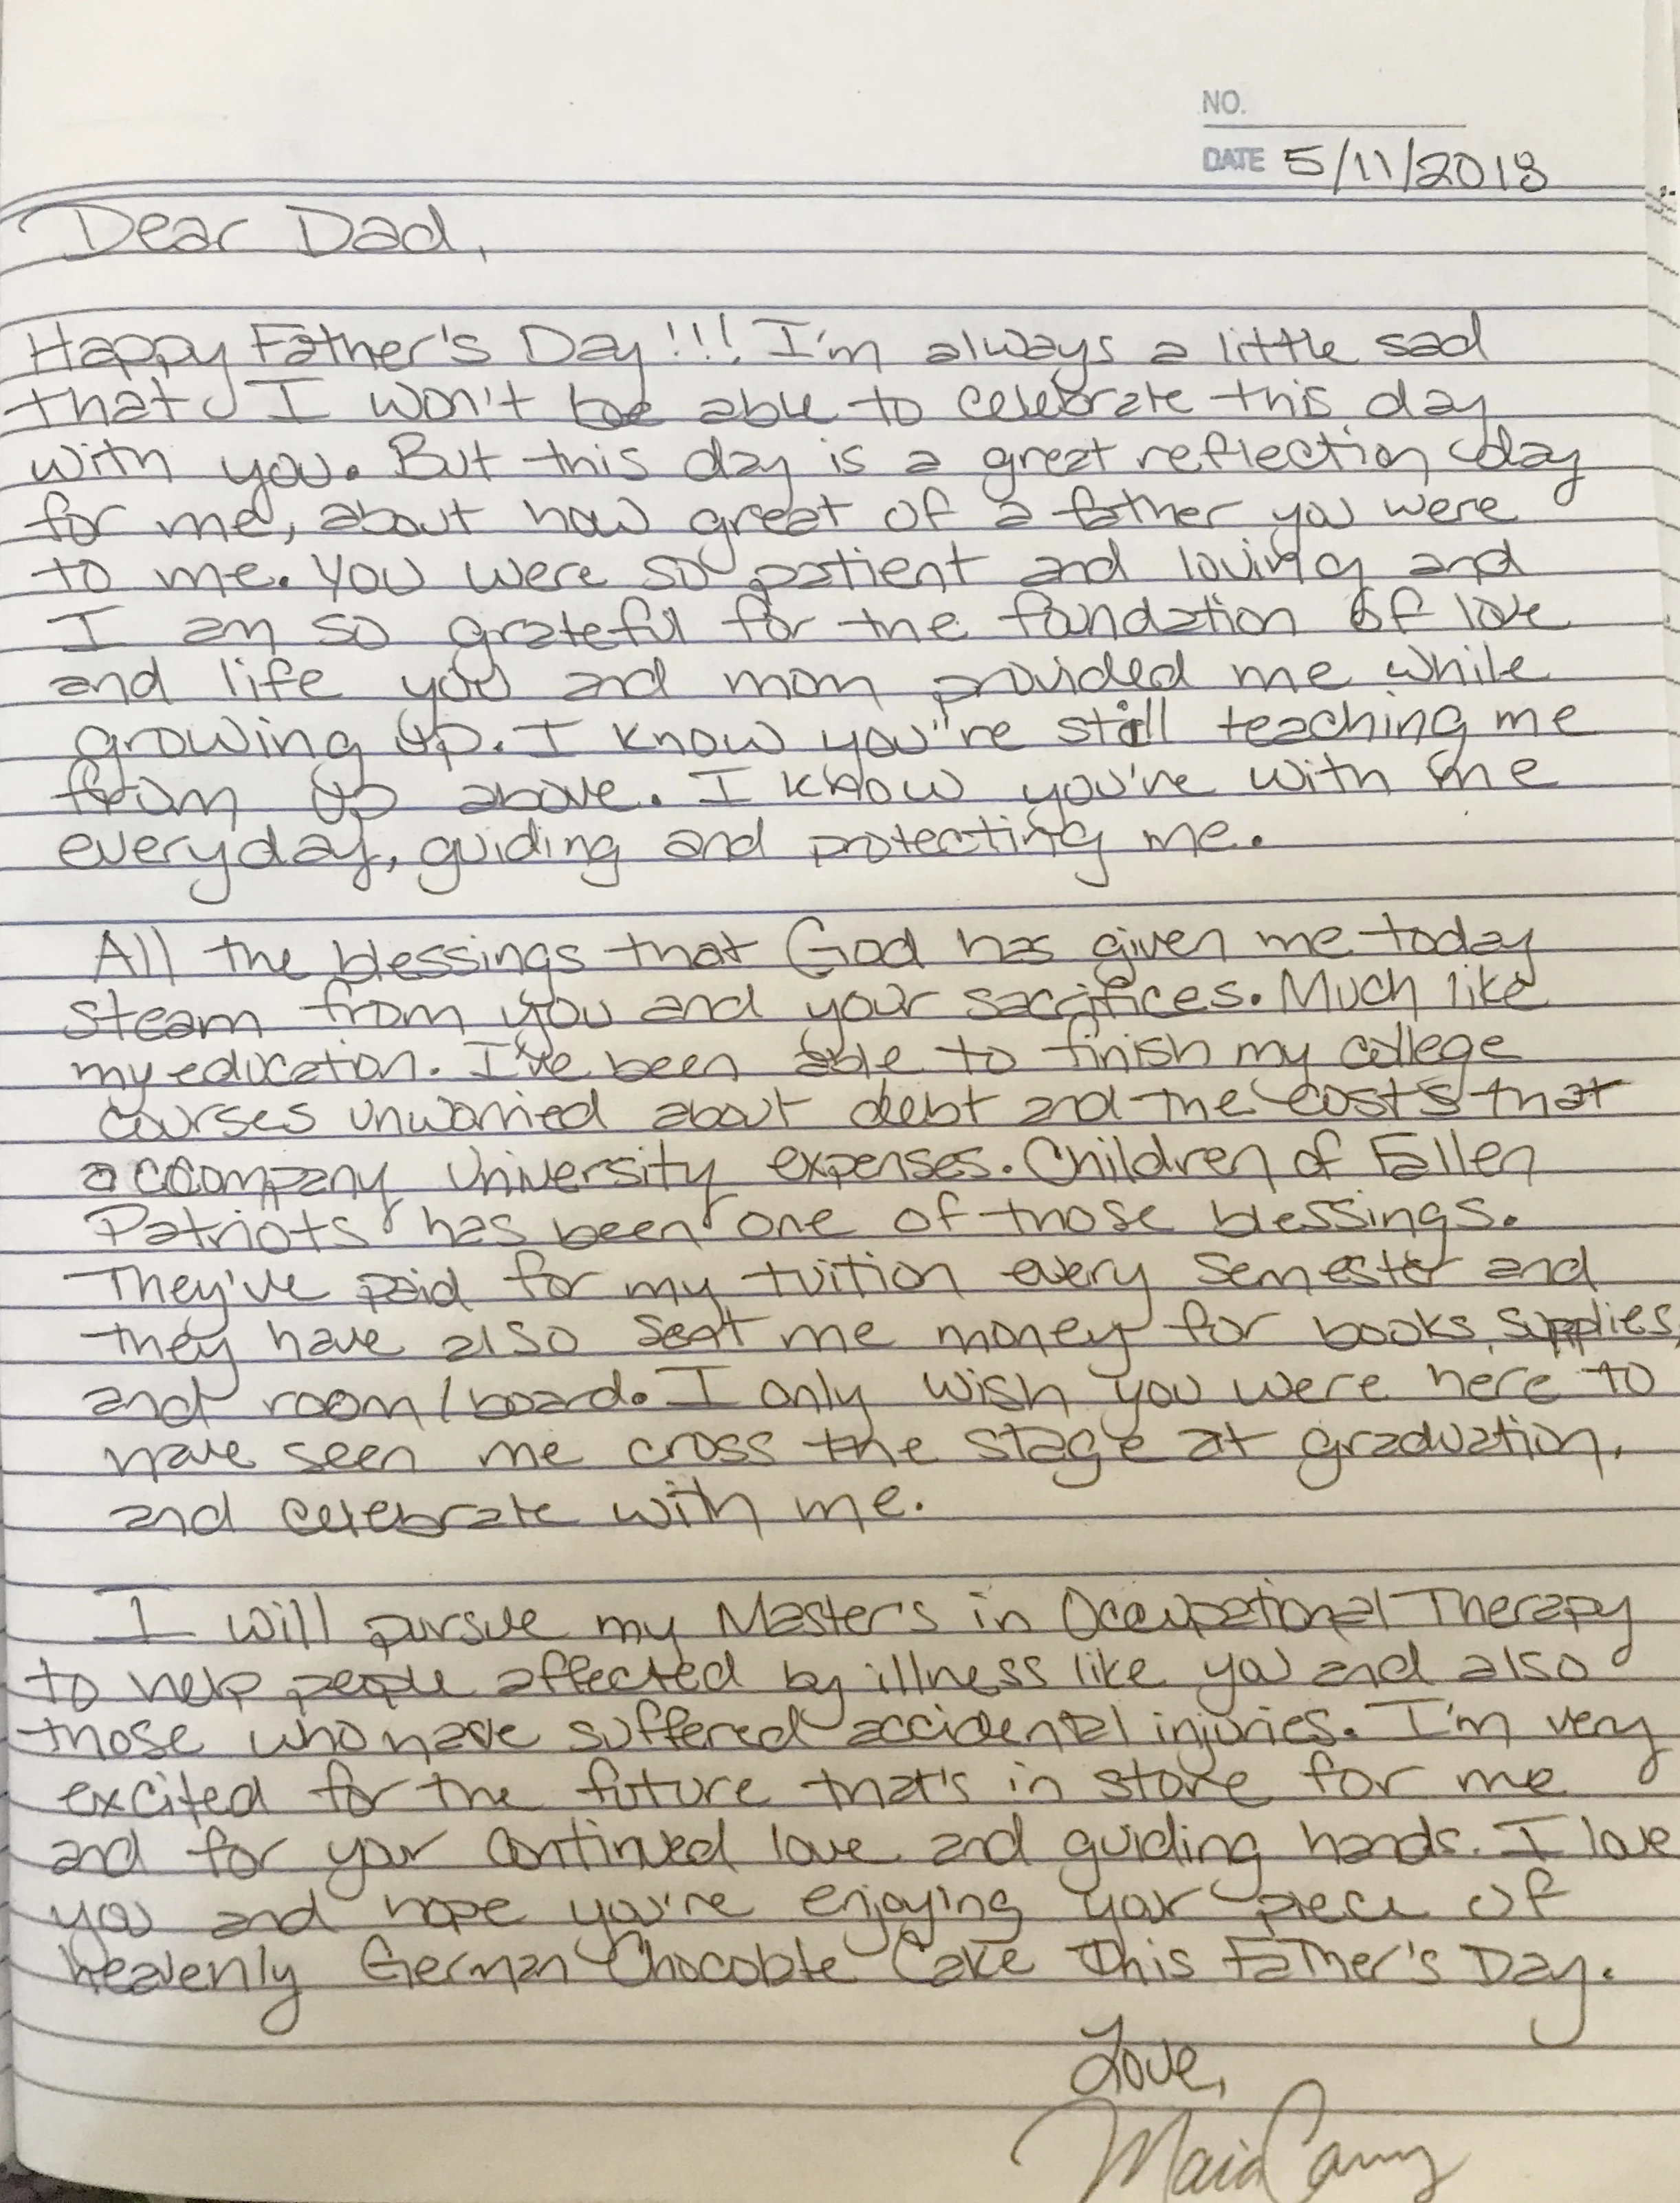 NO.
DATE 5/11/2018
Dear Dad,
Happy Father's Day!!! I'm always a little sad
that I won't be able to celebrate this day
with you. But this day is a great reflection day
for me, about how great of a father you were
to me. You were so patient and loving and
I am so grateful for the foundation of love
and life you and mom provided me while
growing up. I know you're still teaching me
from up above. I know you're with me
everyday, guiding and protecting me.
All the blessings that God has given me today
steam from you and your sacrifices. Much like
my education. I've been able to finish my college
courses unworried about debt and the costs that
accompany University expenses. Children of Fallen
Patriots has been one of those blessings.
They've paid for my tuition every semester and
they have also sent me money for books, supplies,
and room/board. I only wish you were here to
have seen me cross the stage at graduation,
and celebrate with me.
I will pursue my Master's in Occupational Therapy
to help people affected by illness like you and also
those who have suffered accidental injuries. I'm very
excited for the future that's in store for me
and for your continued love and guiding hands. I love
you and hope you're enjoying your piece of
heavenly German Chocolate Cake this Father's Day.
Love,